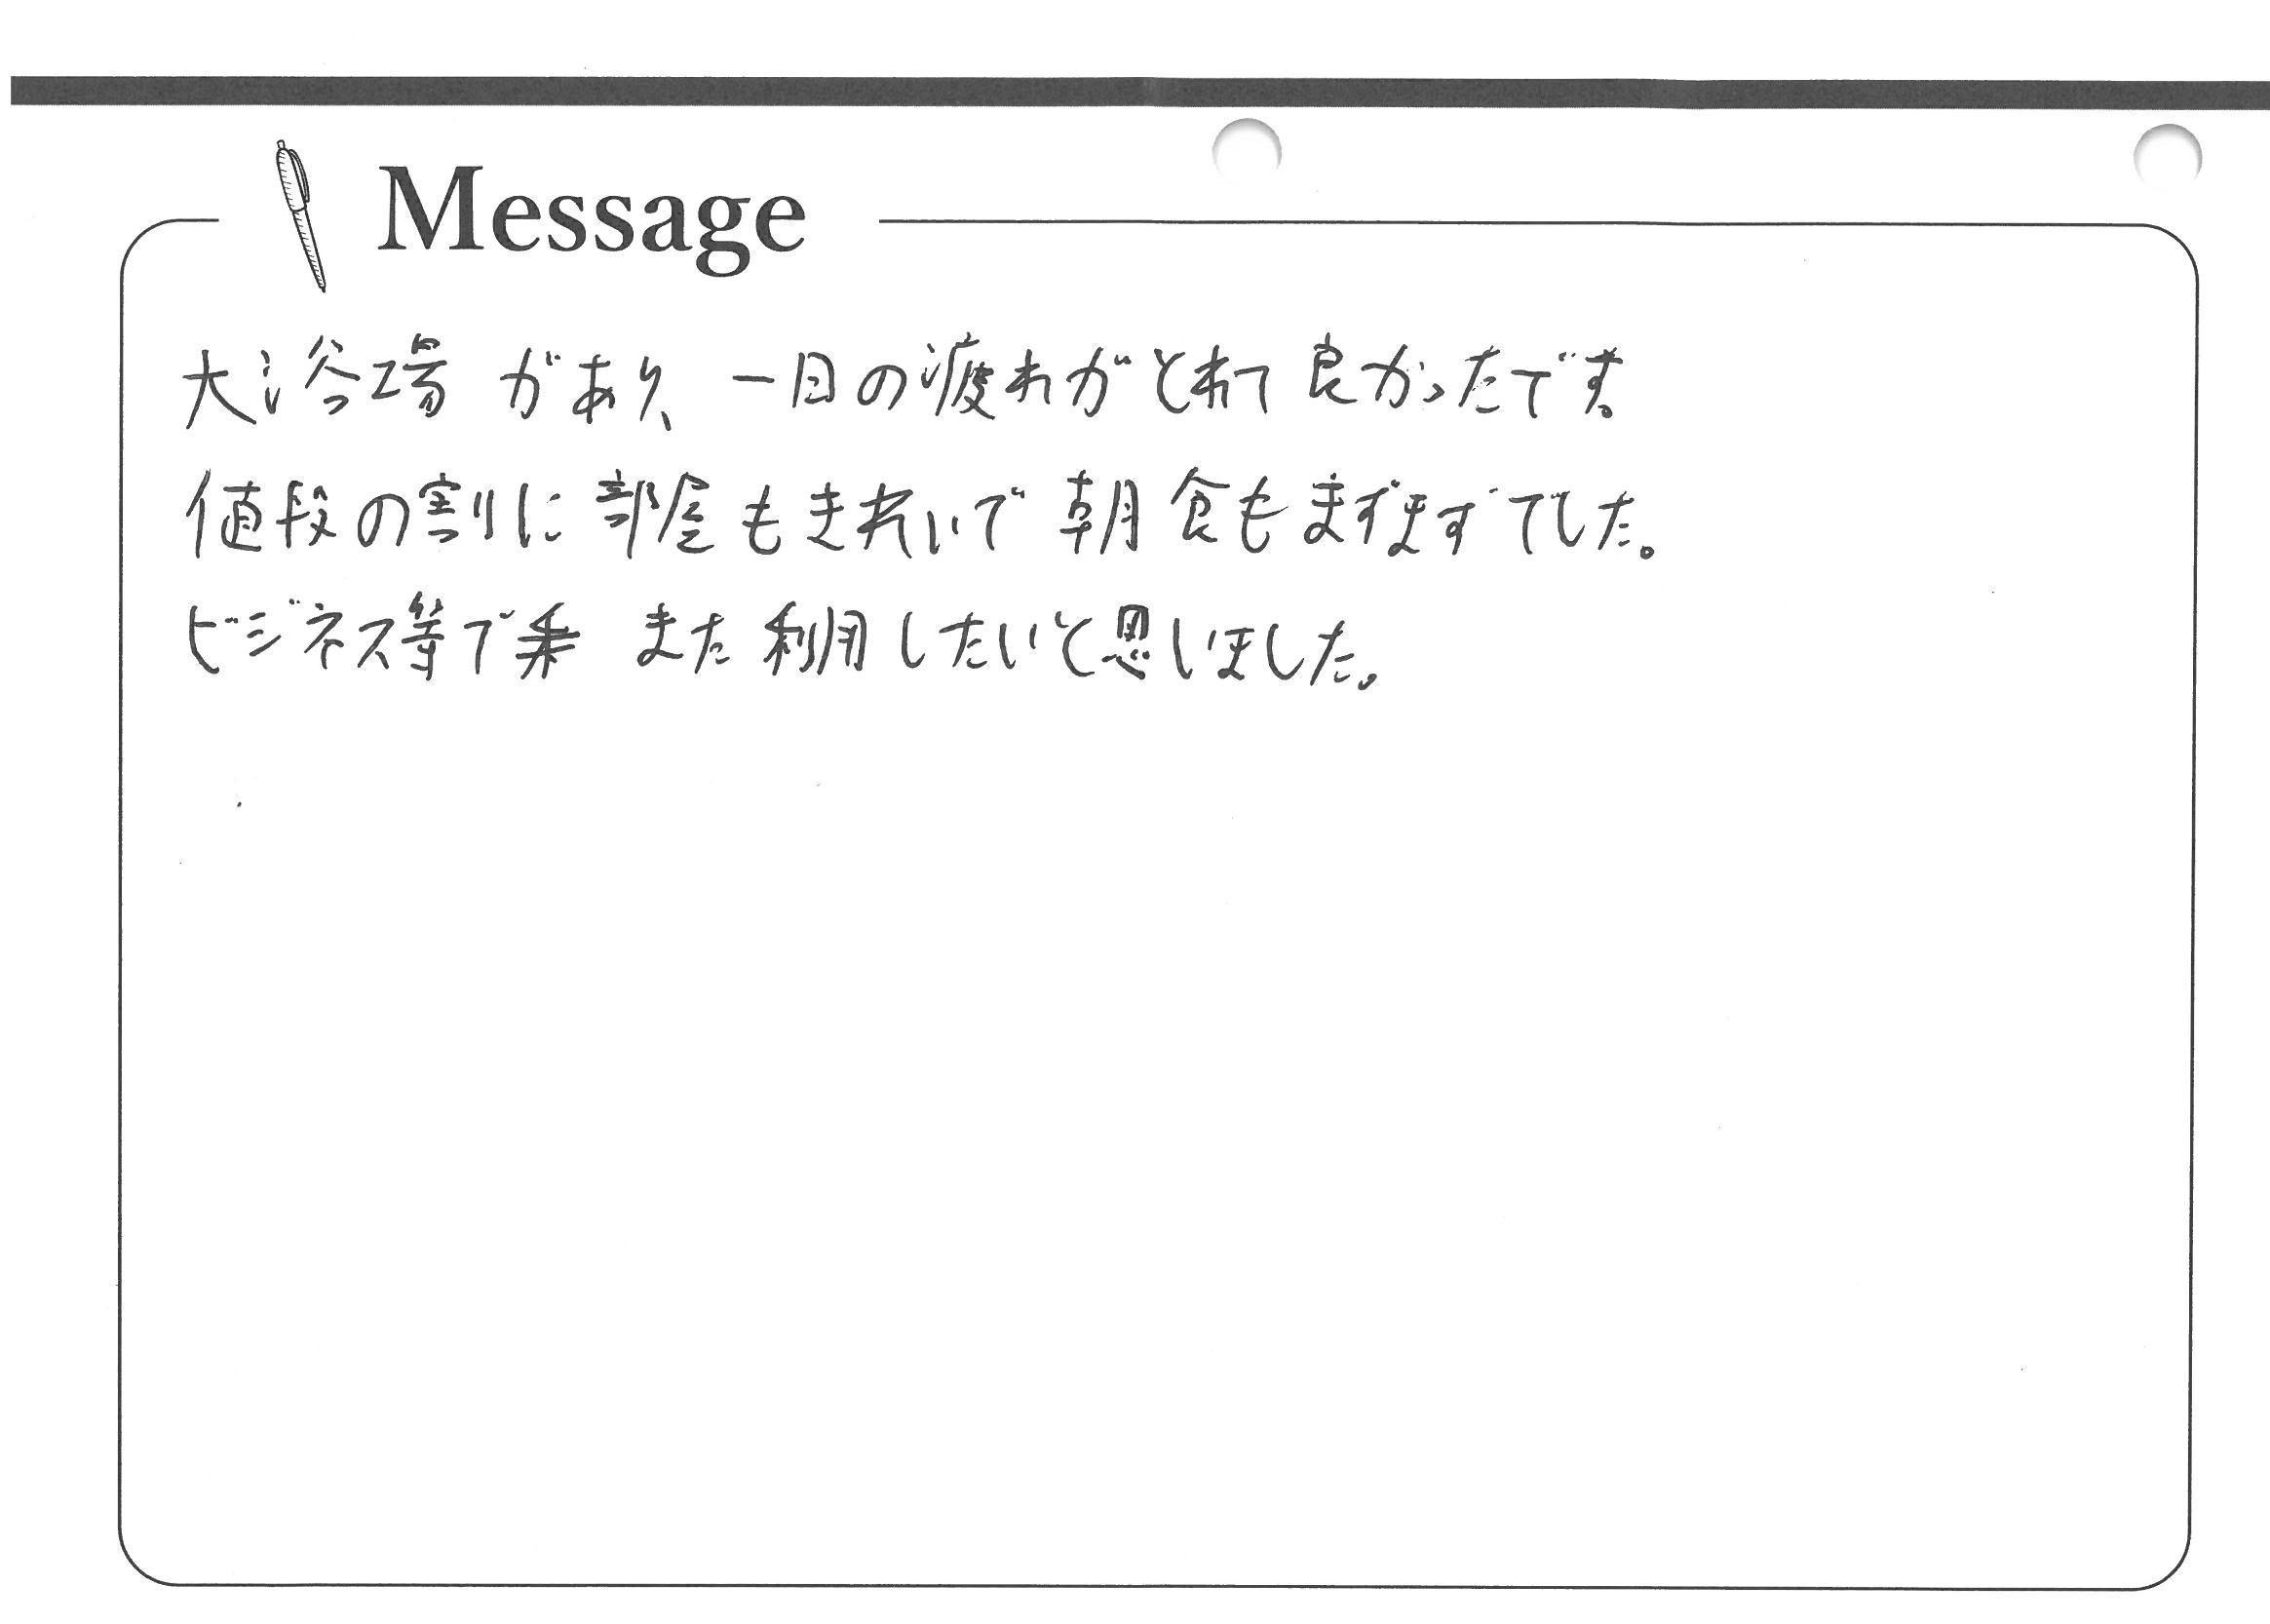 Message
大浴場があり、一日の疲れがとれて良かったです。
値段の割に部屋もきれいで朝食もまずまずでした。
ビジネス等で また利用したいと思いました。